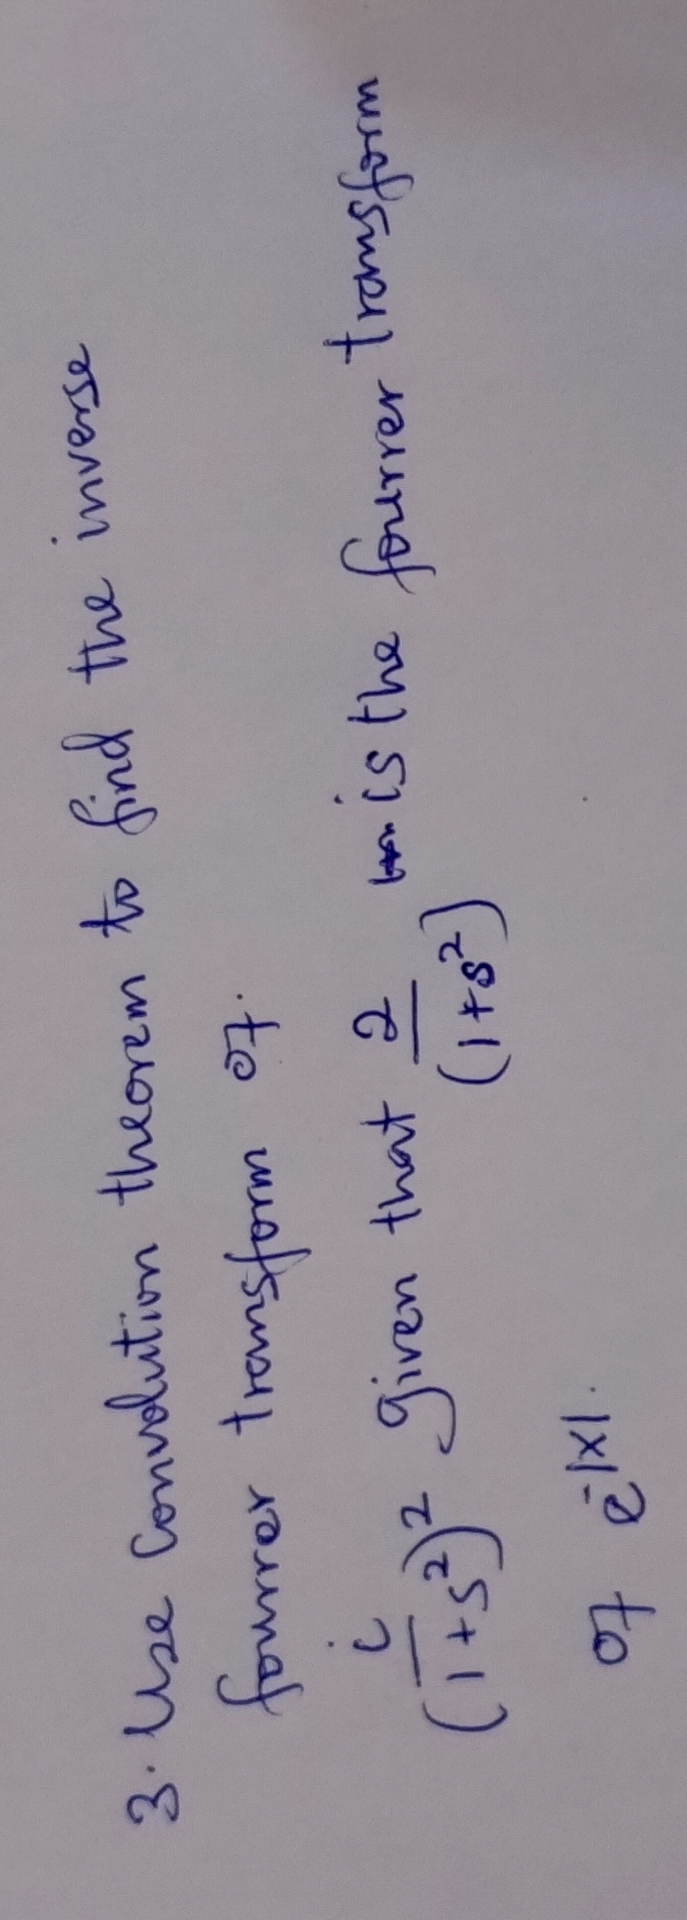 3. Use convolution theorem to find the inverse
fourier transform of.
i/(1+s²)² given that 2/(1+s²) is the fourier transform
of e^-|x|.